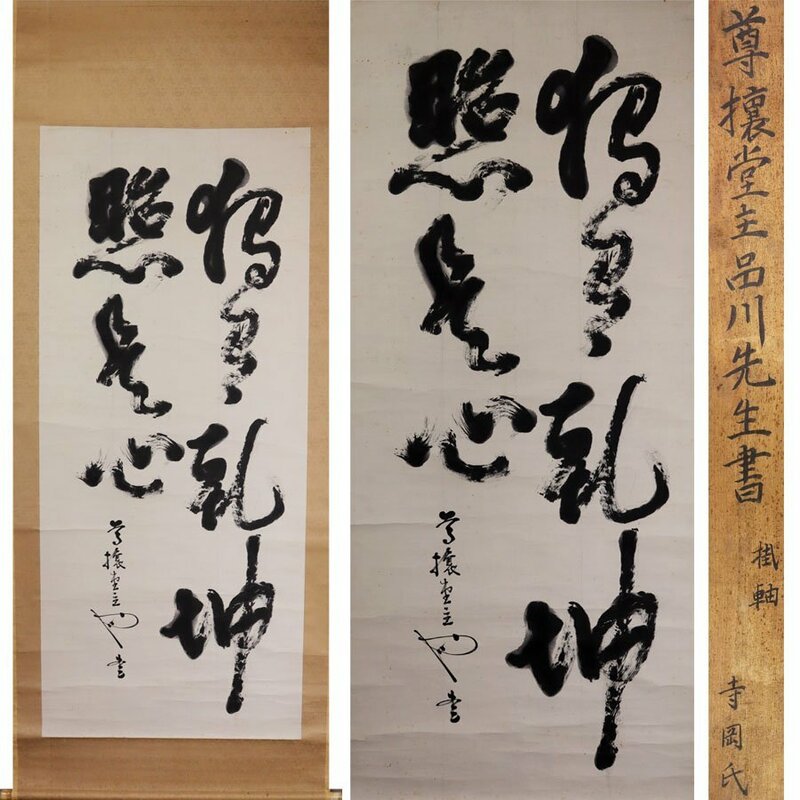 独有乾坤
照是心
尊攘堂主や書
独有乾坤
照是心
尊攘堂主や書
尊攘堂主品川先生書 掛軸 寺岡氏